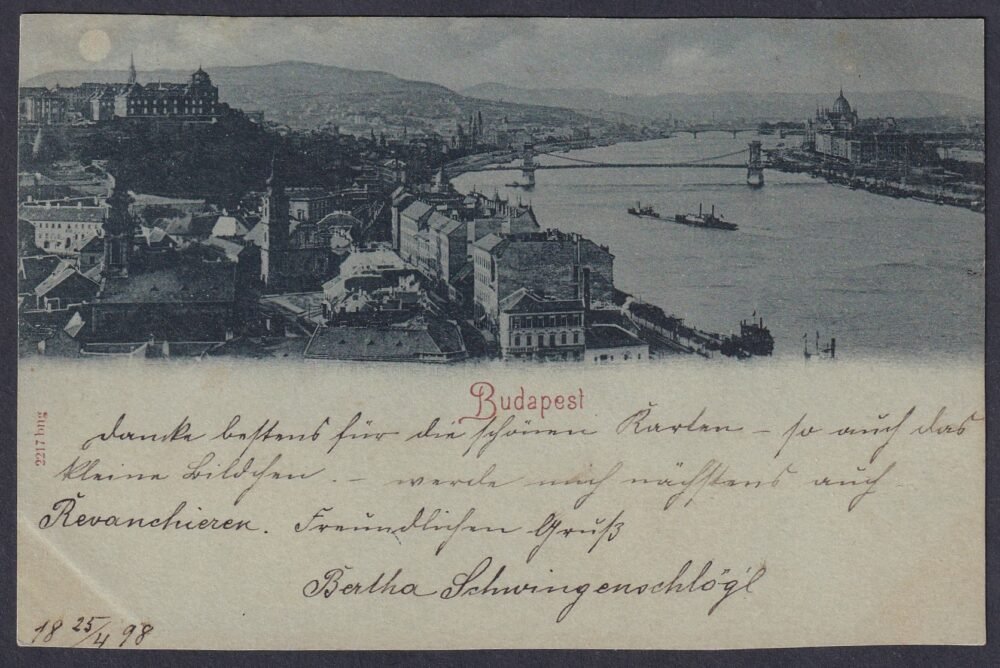 Budapest
2217 bug
Dancke bestens für die schönen Karten – so auch das
kleine Bildchen. – werde mich nächstens auch
Revanchieren. Freundlichen Gruß
Bertha Schwingenschlögl
18 25/4 98